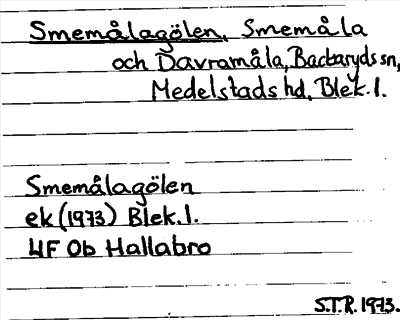 Smemålagölen, Smemåla
och Davramåla, Backaryds sn,
Medelstads hd, Blek. l.
Smemålagölen
ek (1973) Blek. l.
4F 0b Hallabro
S.T.R. 1973.